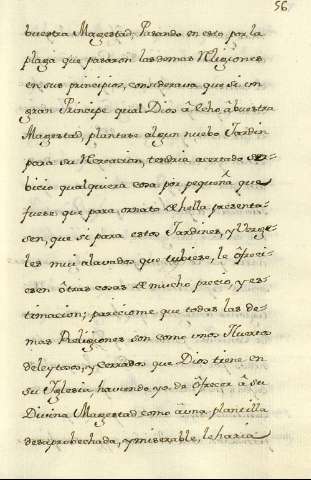 56
buestra Magestad; Pasando en esto por la
plaga que pasaron las demas Religiones
en sus principios, considerava que si un
gran Principe qual Dios â hecho â buestra
Magestad, plantase algun nuebo Jardin
para su Recreacion, tendria acertado ser-
bicio qualquiera cosa por pequeña que
fuese, que para ornato de hella presenta-
sen, que si para estos Jardines, y Verge-
les mui alavados que tubiese, le ôfreci-
esen ôtras cosas de mucho precio, y es-
timacion; pareciome que todas las de-
mas Religiones son como unos Huertos
deleytosos, y cerrados que Dios tiene en
su Yglesia, haviendo yo de ôfrecer â su
Divina Magestad como âuna plantilla
desaprobechada, y miserable, le haria